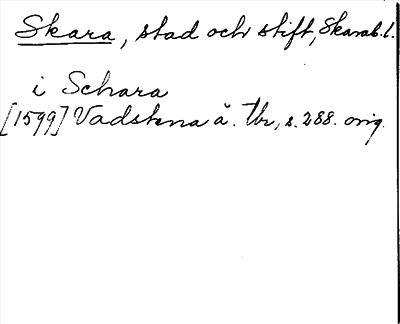 Skara, stad och stift, Skarab. l.
i Schara
[1599] Vadstena ä. tbr, s. 288. orig.